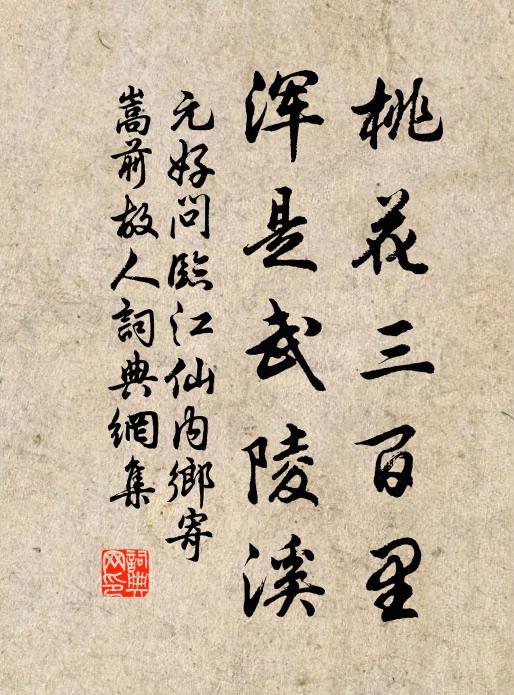 桃花三百里
浑是武陵溪
元好问临江仙内鄉寄
嵩前故人詞典網集
詞典
网印